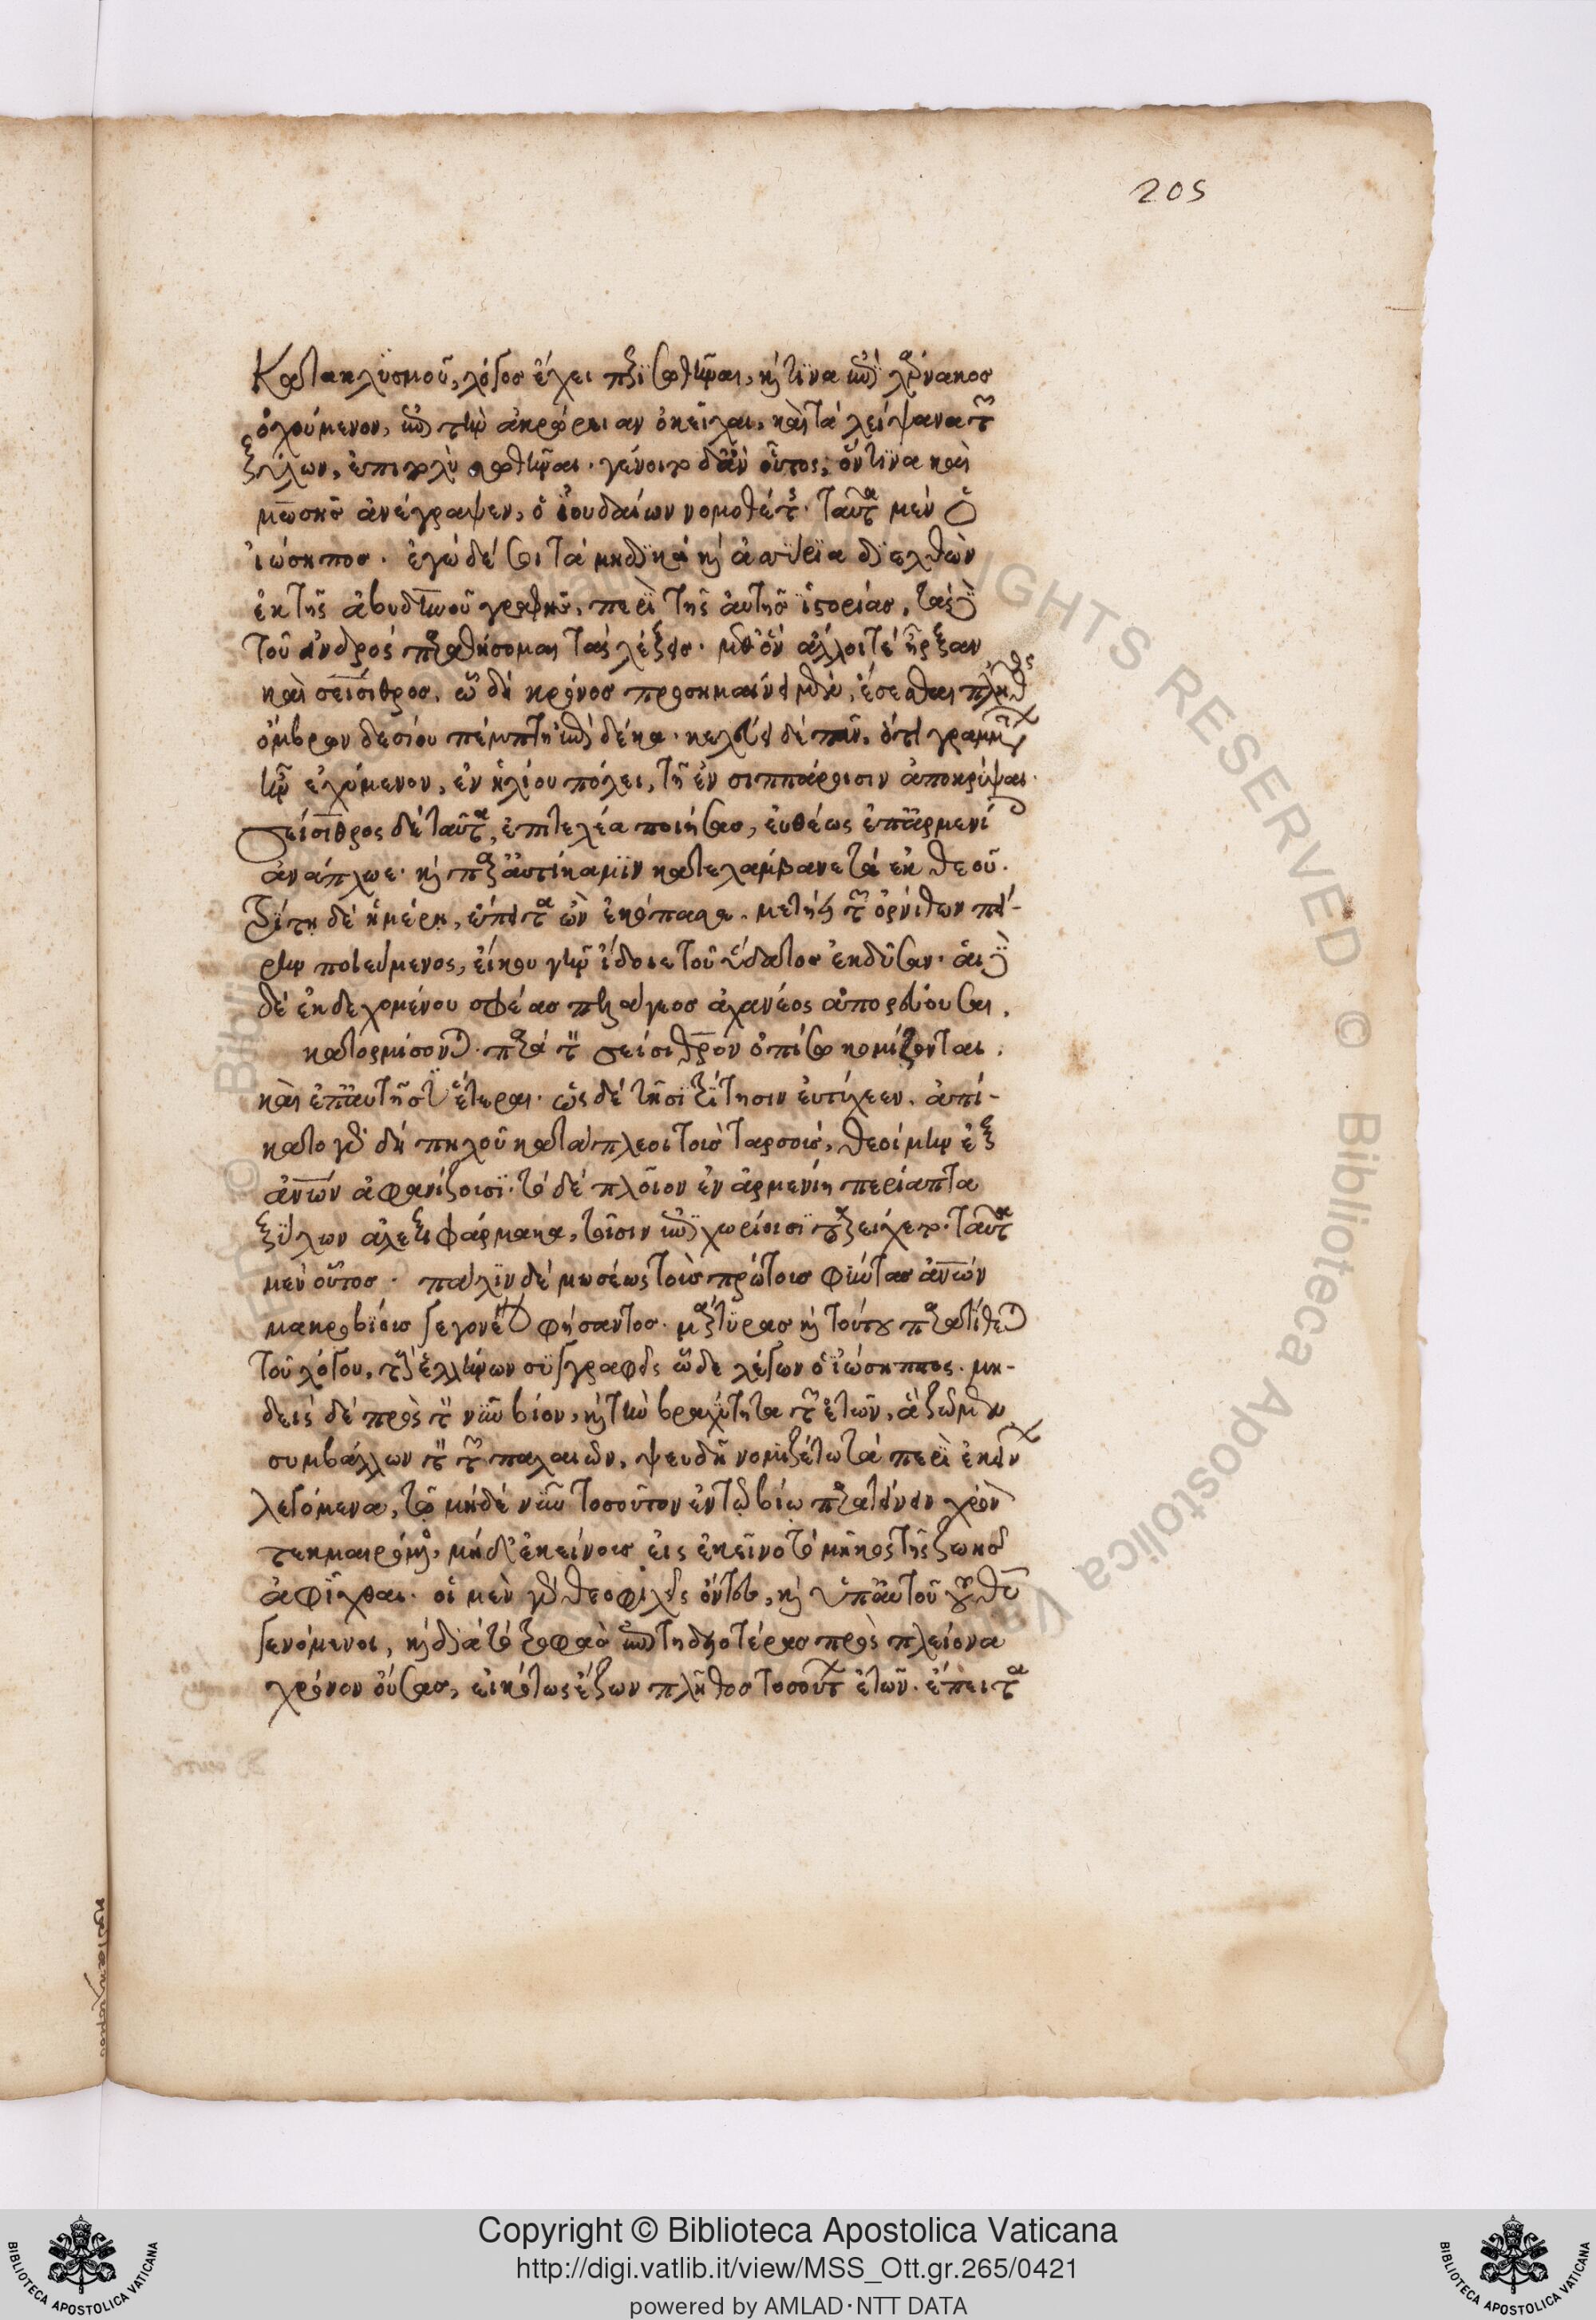 205
Κατακλυσμοῦ, λόγος ἔχει περισωθῆναι, καὶ τινα ἐπὶ λάρνακος
ὀχούμενον, ἐπὶ τὴν ἀκρώρειαν ὀκεῖλαι, καὶ τὰ λείψανα τῶν
ξύλων, ἐπιπολὺ σωθῆναι. γένοιτο δ' ἂν οὗτος, ὅντινα καὶ
μωσῆς ἀνέγραψεν, ὁ ἰουδαίων νομοθέτης. ταῦτα μὲν ὁ
ἰώσηπος. ἐγὼ δέ σοι τὰ μηδικὰ καὶ ἀσσύρια διελθὼν
ἐκ τῆς ἀβυδηνοῦ γραφῆς, περὶ τῆς αὐτῆς ἱστορίας, τὰς
τοῦ ἀνδρὸς παραθήσομαι τὰς λέξεις. μεθ' ὃν ἄλλοι τὲ ἦρξαν
καὶ σείσιθρος, ᾧ δὴ κρόνος προσημαίνει μὲν, ἔσεσθαι πλῆθος
ὄμβρων δεσίου πέμπτη ἐπὶ δέκα. κελεύει δὲ πᾶν, ὅτι γραμμάτων
ἦν ἐχόμενον, ἐν ἡλίου πόλει, τῇ ἐν σιππάροισιν ἀποκρύψαι.
σείσιθρος δὲ ταῦτα, ἐπιτελέα ποιήσας, εὐθέως ἐπ' ἀρμενίης
ἀνάπλωε. καὶ παραυτίκα μιν κατελάμβανε τὰ ἐκ θεοῦ.
τρίτῃ δὲ ἡμέρῃ, ἔπειτα ὢν ἐκόπασα. μετῄει τῶν ὀρνίθων πεῖ-
ρην ποιεύμενος, εἴκου γῆν ἴδοιε τοῦ ὕδατος ἐκδῦσαν. αἱ
δὲ ἐκδεχομένου σφέας πελάγεος ἀχανέος ἀπορέουσαι,
κατορμίσονται. παρὰ τὸν σείσιθρον ὀπίσω κομίζονται,
καὶ ἐπ' αὐτῇσιν ἕτεραι. ὡς δὲ τῇσι τρίτῃσιν εὐτύχεεν, ἀπί-
κατο γὰρ δὴ πηλοῦ κατάπλεοι τοὺς ταρσούς, θεοί μιν ἐξ
ἀνῶν ἀφανίζουσι. τὸ δὲ πλοῖον ἐν ἀρμενίῃ περίαπτα
ξύλων ἀλεξιφάρμακα, τοῖσιν ἐπιχωρίοισι παρείχετο. ταῦτα
μὲν οὗτος. πάλιν δὲ μωσέως τοὺς πρώτους φύντας ἀνῶν
μακροβίους γεγονέναι φήσαντος. μάρτυρας καὶ τούτου παρατίθεται
τοῦ λόγου, τοὺς ἑλλήνων συγγραφεῖς ὧδε λέγων ὁ ἰώσηππος. μη-
δεὶς δὲ πρὸς τὸν νῦν βίον, καὶ τὴν βραχύτητα τῶν ἐτῶν, ἃ ζῶμεν
συμβάλλων τὸν τῶν παλαιῶν, ψευδῆ νομιζέτω τὰ περὶ ἐκείνων
λεγόμενα, τῷ μηδὲ νῦν τοσοῦτον ἐν τῷ βίῳ παρατείνειν χρόνον
τεκμαιρόμενος, μήδ' ἐκείνους εἰς ἐκεῖνο τὸ μῆκος τῆς ζωῆς
ἀφῖχθαι. οἱ μὲν γὰρ θεοφιλεῖς ὄντες, καὶ ὑπ' αὐτοῦ τοῦ θεοῦ
γενόμενοι, καὶ διὰ τὸ τροφὰς ἐπιτηδειοτέρας πρὸς πλείονα
χρόνον οὔσας, εἰκότως ἔζων πλῆθος τοσούτων ἐτῶν. ἔπειτα
Copyright © Biblioteca Apostolica Vaticana
http://digi.vatlib.it/view/MSS_Ott.gr.265/0421
powered by AMLAD·NTT DATA